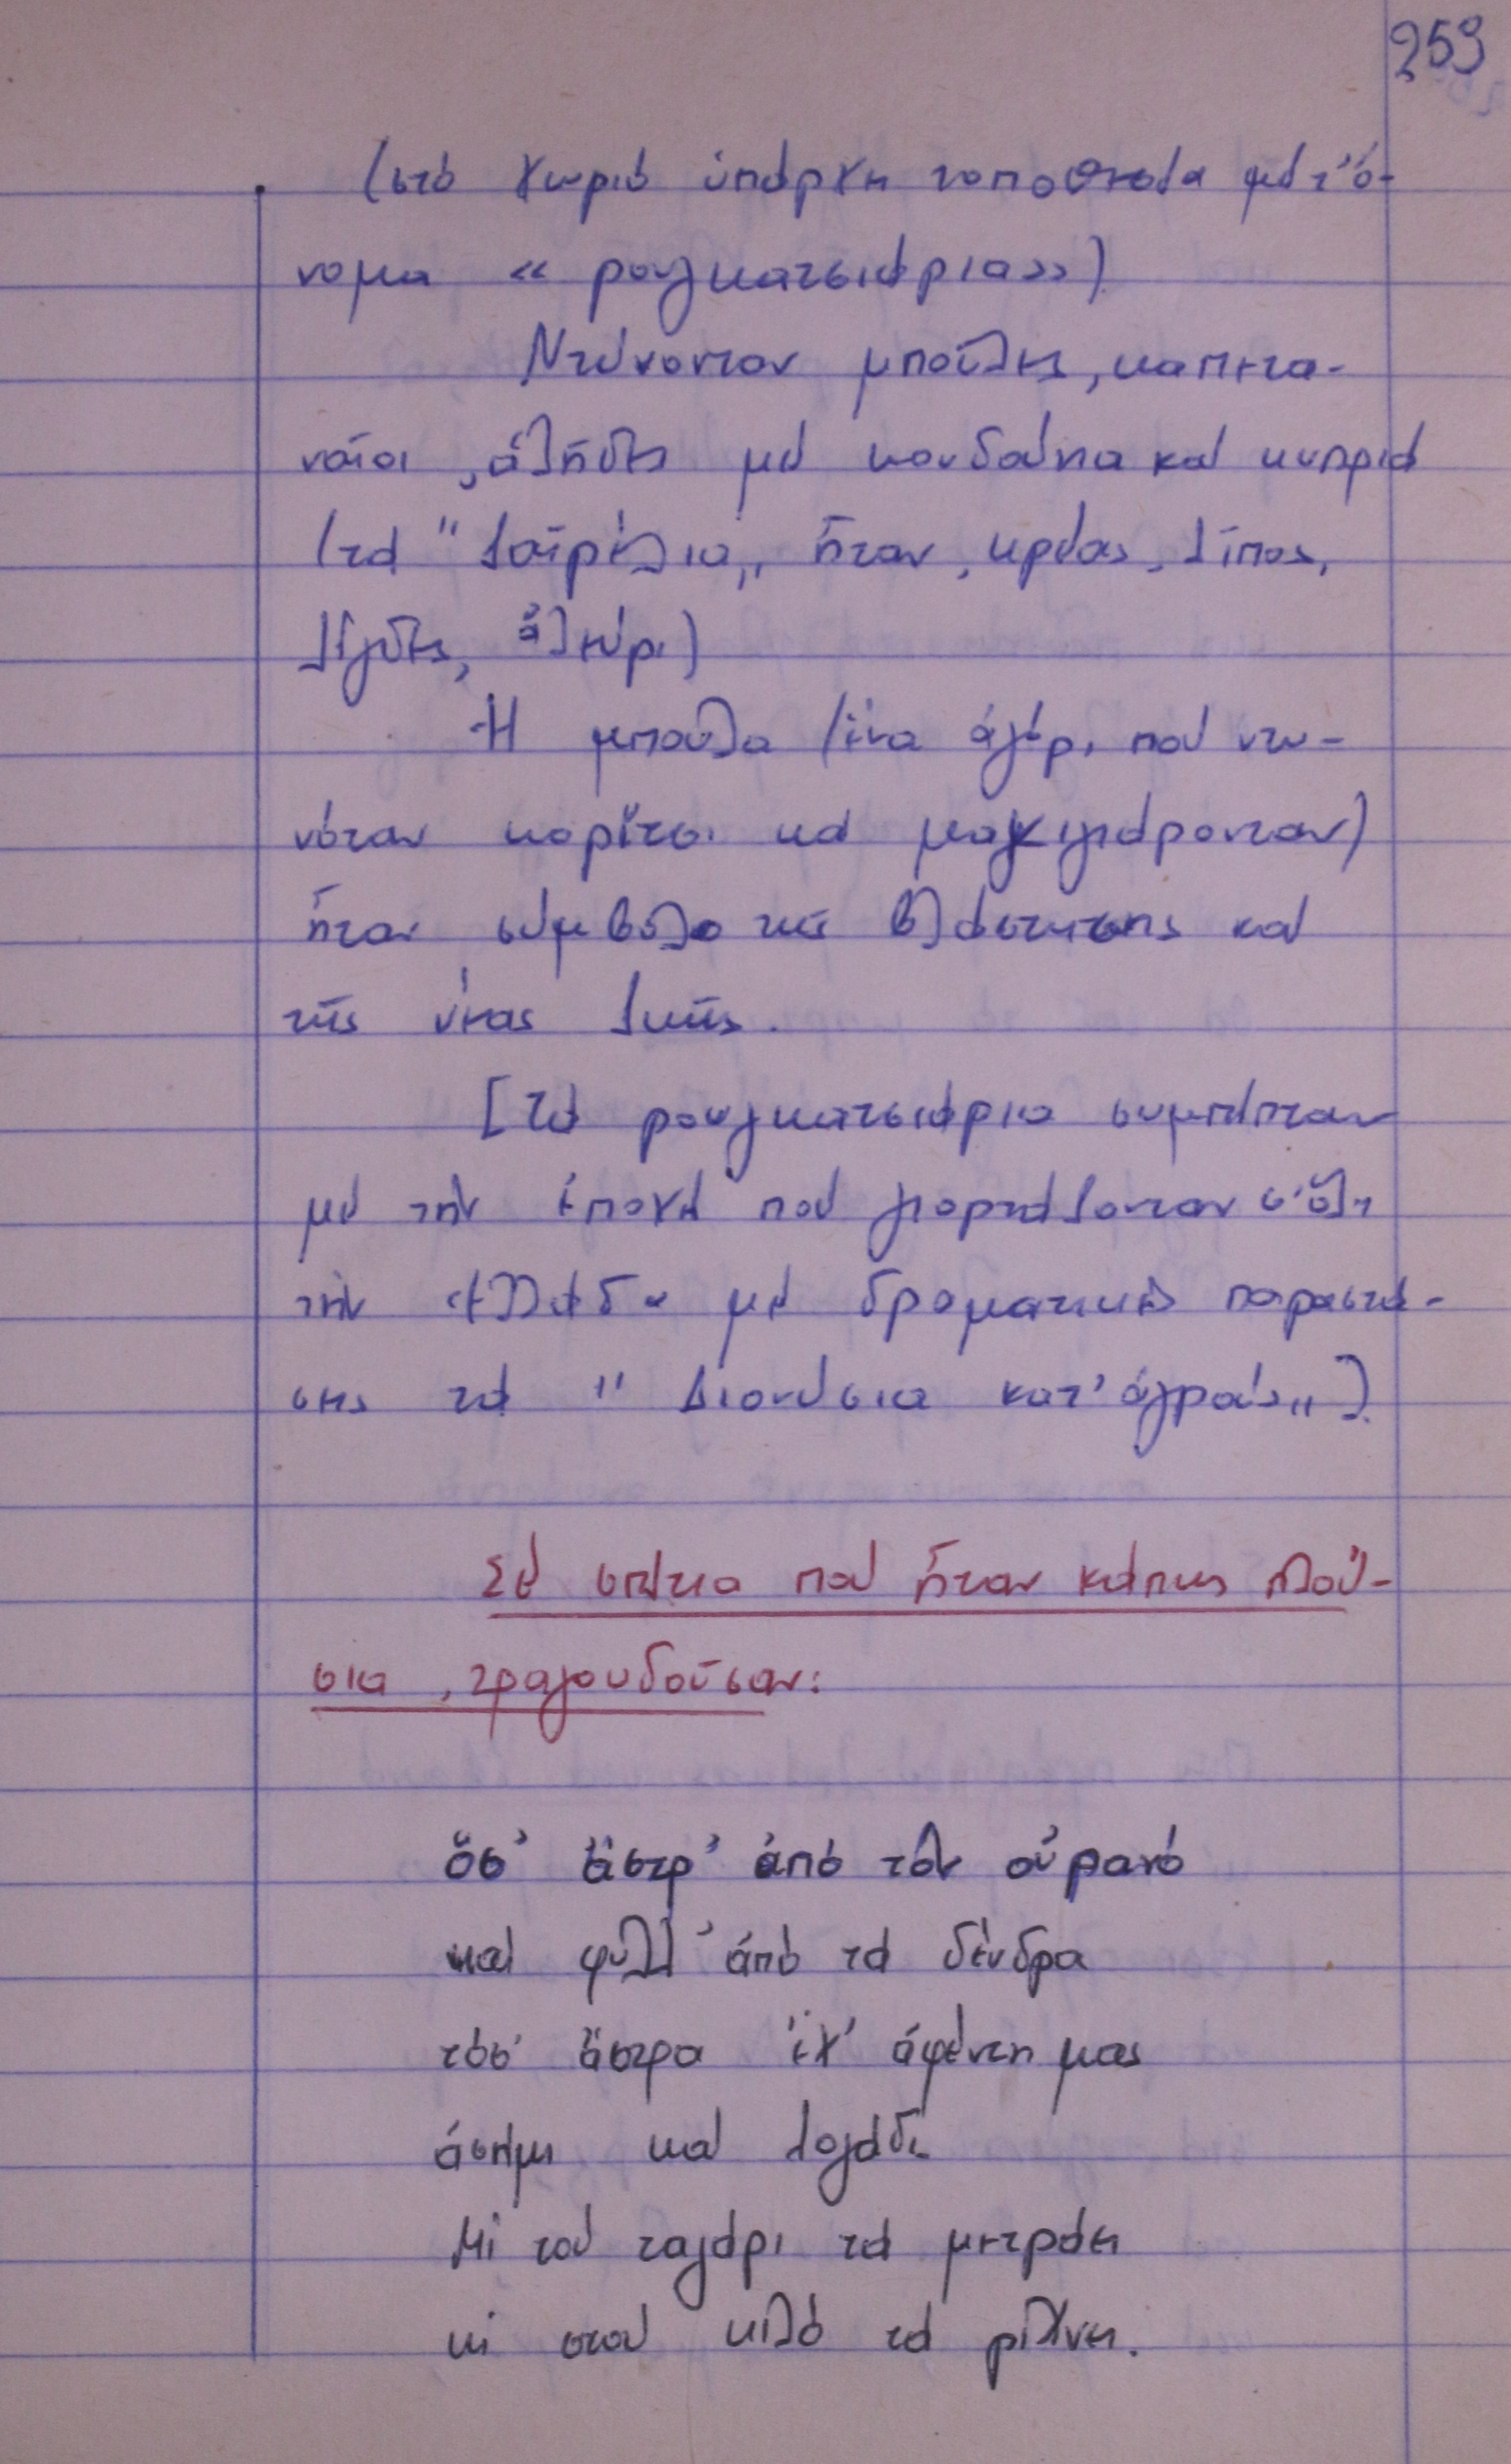 259
(στό χωριό ὑπάρχει τοποθεσία μέ τ' ὄ-
νομα « ρουγκατσιάρια»)
Ντύνονταν μποῦλες, καπετα-
ναῖοι, ἀλῆδες μέ κουδούνια καί κυπριά
(τά " ζαϊρέλια,, ἦταν, κρέας, λίπος,
λίγδες, ἀλεύρι)
Ἡ μπούλα (ἕνα ἀγόρι πού ντυ-
νόταν κορίτσι καί μακιγιάρονταν)
ἦταν σύμβολο τῆς βλάστησης καί
τῆς νέας ζωῆς.
[Τά ρουγκατσιάρια συμπέπταν
μέ τήν ἐποχή πού γιορτάζονταν σ' ὅλη
τήν Ἑλλάδα μέ δραματικές παραστά-
σεις τά " Διονύσια κατ' ἀγρούς,, ].
Σέ σπίτια πού ἦταν κάπως πλού-
σια, τραγουδοῦσαν:
ὅσ' ἄστρ' ἀπό τόν οὐρανό
καί φύλλ' ἀπό τά δένδρα
τόσ' ἄσπρα ἔχ' ἀφέντη μας
ἀσήμι καί λογάδι
Μί τού ταγάρι τά μετράει
κί στού κιλό τά ρίχνει.